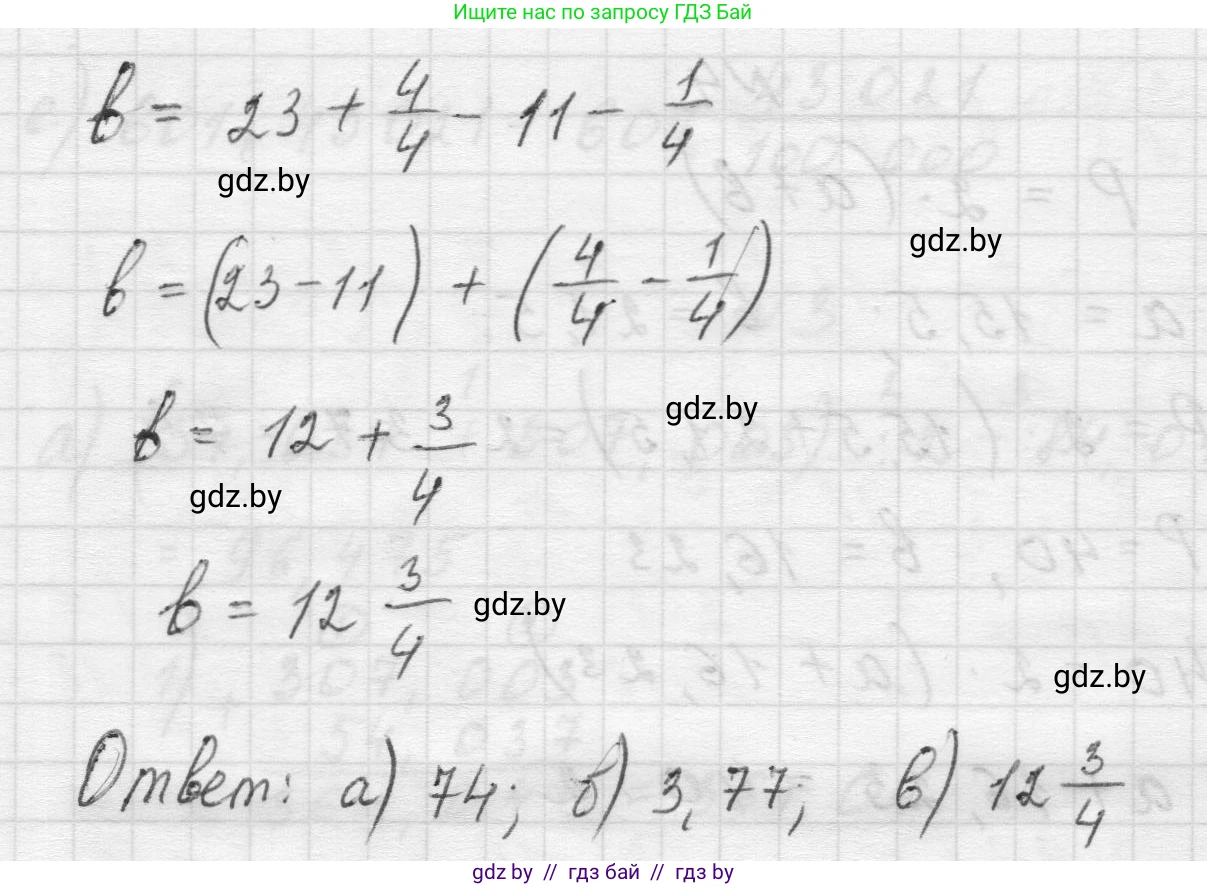 Ищите нас по запросу ГДЗ Бай
в = 23 + 4/4 - 11 - 1/4
gdz.by
gdz.by
в = (23 - 11) + (4/4 - 1/4)
в = 12 + 3/4
gdz.by
gdz.by
в = 12 3/4
gdz.by
gdz.by
Ответ: а) 74; б) 3,77; в) 12 3/4
gdz by // гдз бай // gdz by